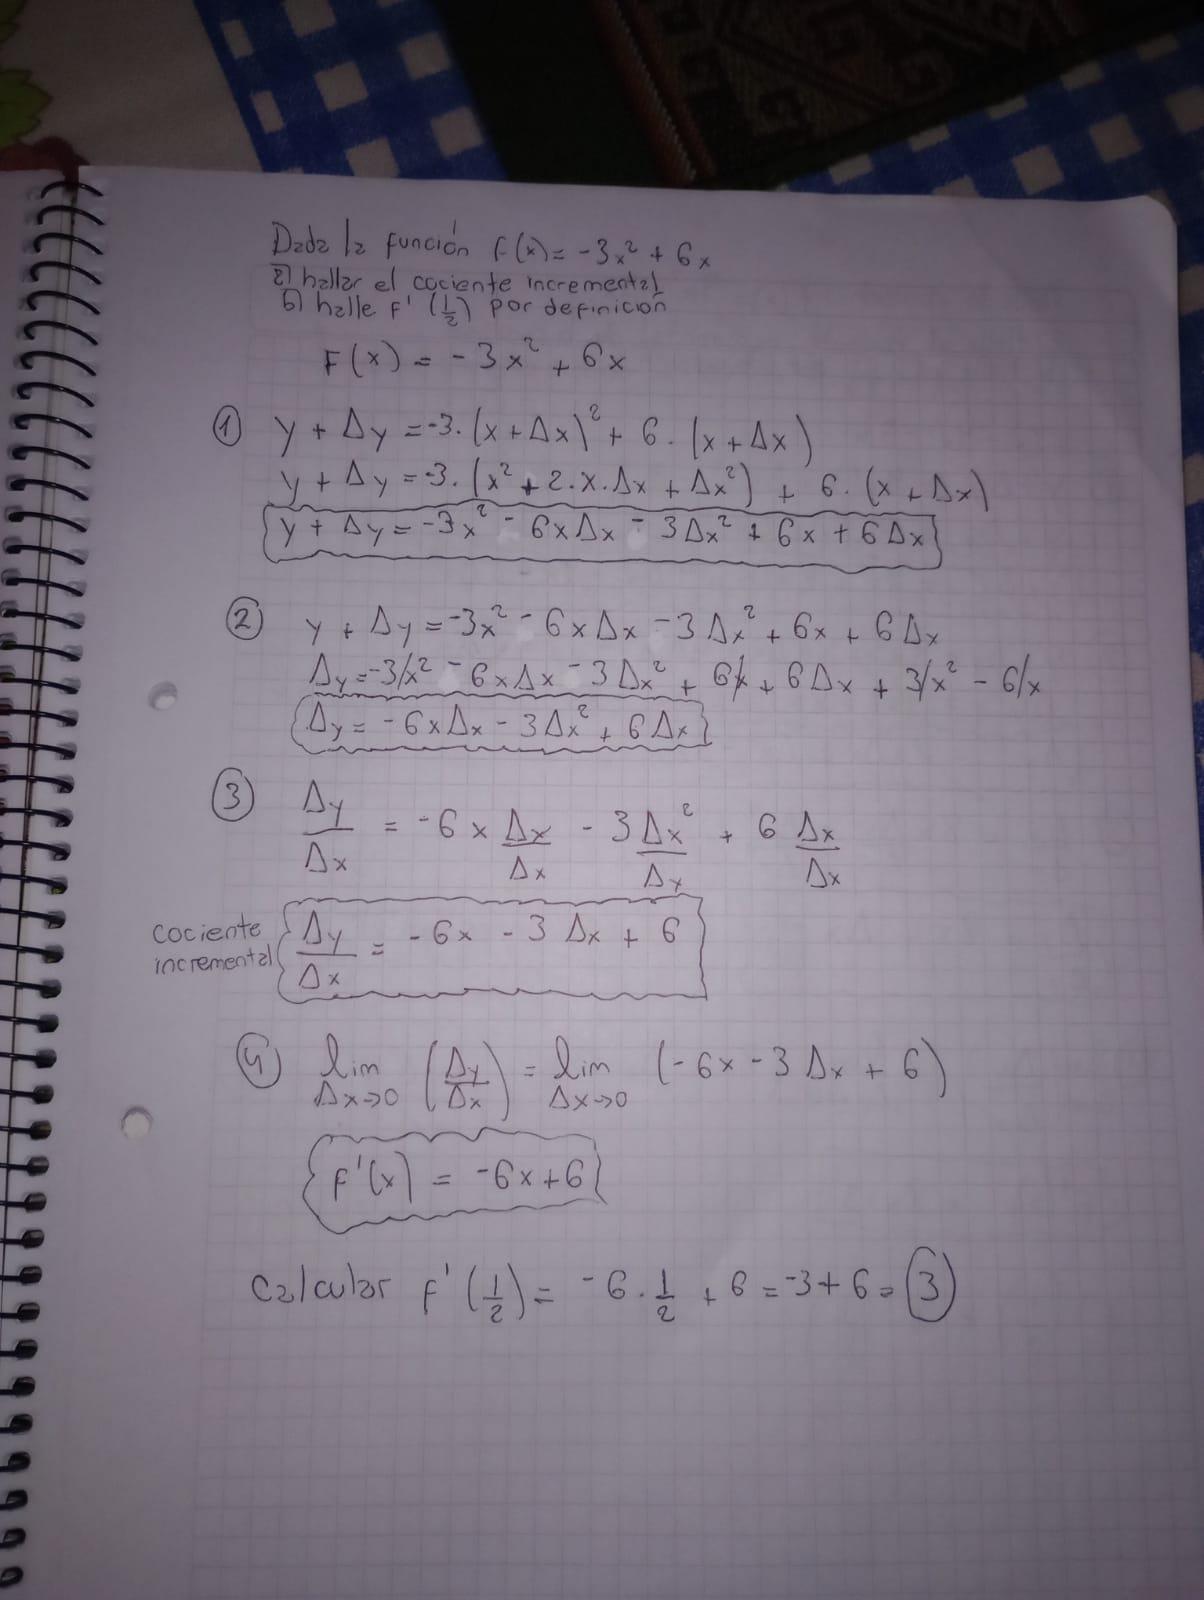 Dada la función f(x) = -3x² + 6x
a) hallar el cociente incremental
b) halle f' (1/2) por definición
F(x) = -3x² + 6x
① y + Δy = -3. (x + Δx)² + 6. (x + Δx)
y + Δy = -3. (x² + 2.x.Δx + Δx²) + 6. (x + Δx)
y + Δy = -3x² - 6xΔx - 3Δx² + 6x + 6Δx
② y + Δy = -3x² - 6xΔx - 3Δx² + 6x + 6Δx
Δy = -3x² - 6xΔx - 3Δx² + 6x + 6Δx + 3x² - 6x
Δy = -6xΔx - 3Δx² + 6Δx
③ Δy/Δx = -6x Δx/Δx - 3 Δx²/Δx + 6 Δx/Δx
cociente incremental Δy/Δx = -6x - 3Δx + 6
④ lim Δx→0 (Δy/Δx) = lim Δx→0 (-6x - 3Δx + 6)
f'(x) = -6x + 6
Calcular f' (1/2) = -6 . 1/2 + 6 = -3 + 6 = 3